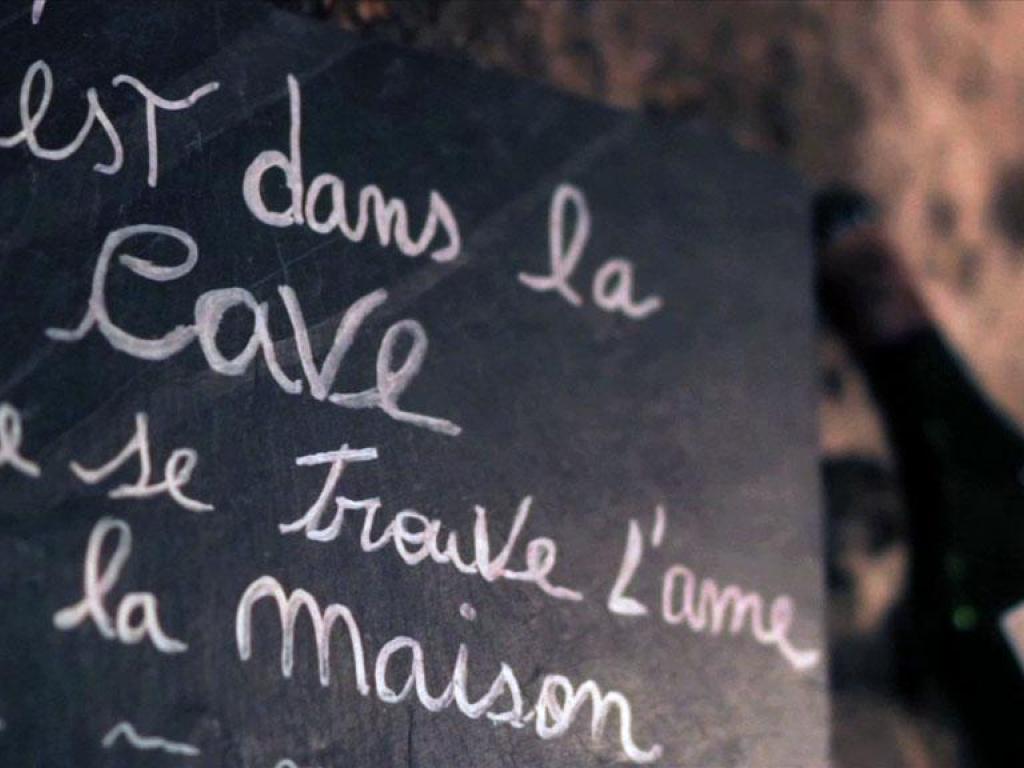 'est dans la
Cave
e se trouve l'ame
la maison